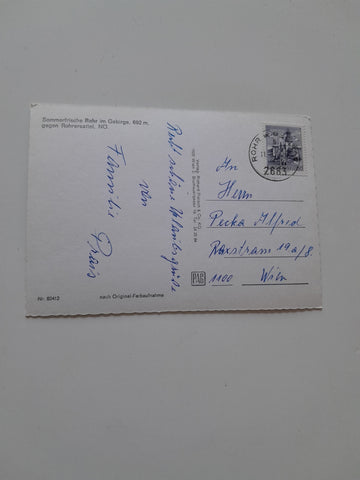 Sommerfrische Rohr im Gebirge, 692 m,
gegen Rohrersattel, NÖ.
Recht schöne Urlaubsgrüße
von
Familie
Nr. 60412
nach Original-Farbaufnahme
PAG
ROHR
2663
An
Herrn
Pecka Alfred
Raxstrasse 19a/8.
1100 Wien